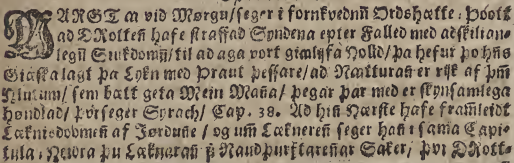 MARGT aa vid Morgu/ seger i fornkvednū Ordshætte: Poott
ad DRotten hafe straffad Syndena epter Falled med adskilian-
legū Siukdomū/ til ad aga vort giælysa Holld/ þa hefur þo hñs
Giæska lagt þa Lykn med Þraut þessare/ ad Nætturañ er rijk af þm̄
Hlutum/ sem bætt geta Mein Maña/ þegar þar med er skynsamlega
høndlad/ þvi seger Syrach/ Cap. 38. Ad hiñ Hærste hafe framleidt
Læknisdoomeñ af Jørduñe/ og um Læknereñ seger hañ i sama Capi-
tula, Heidra þu Læknarañ þ Naudþurftareñar Saker/ þvi DRott-